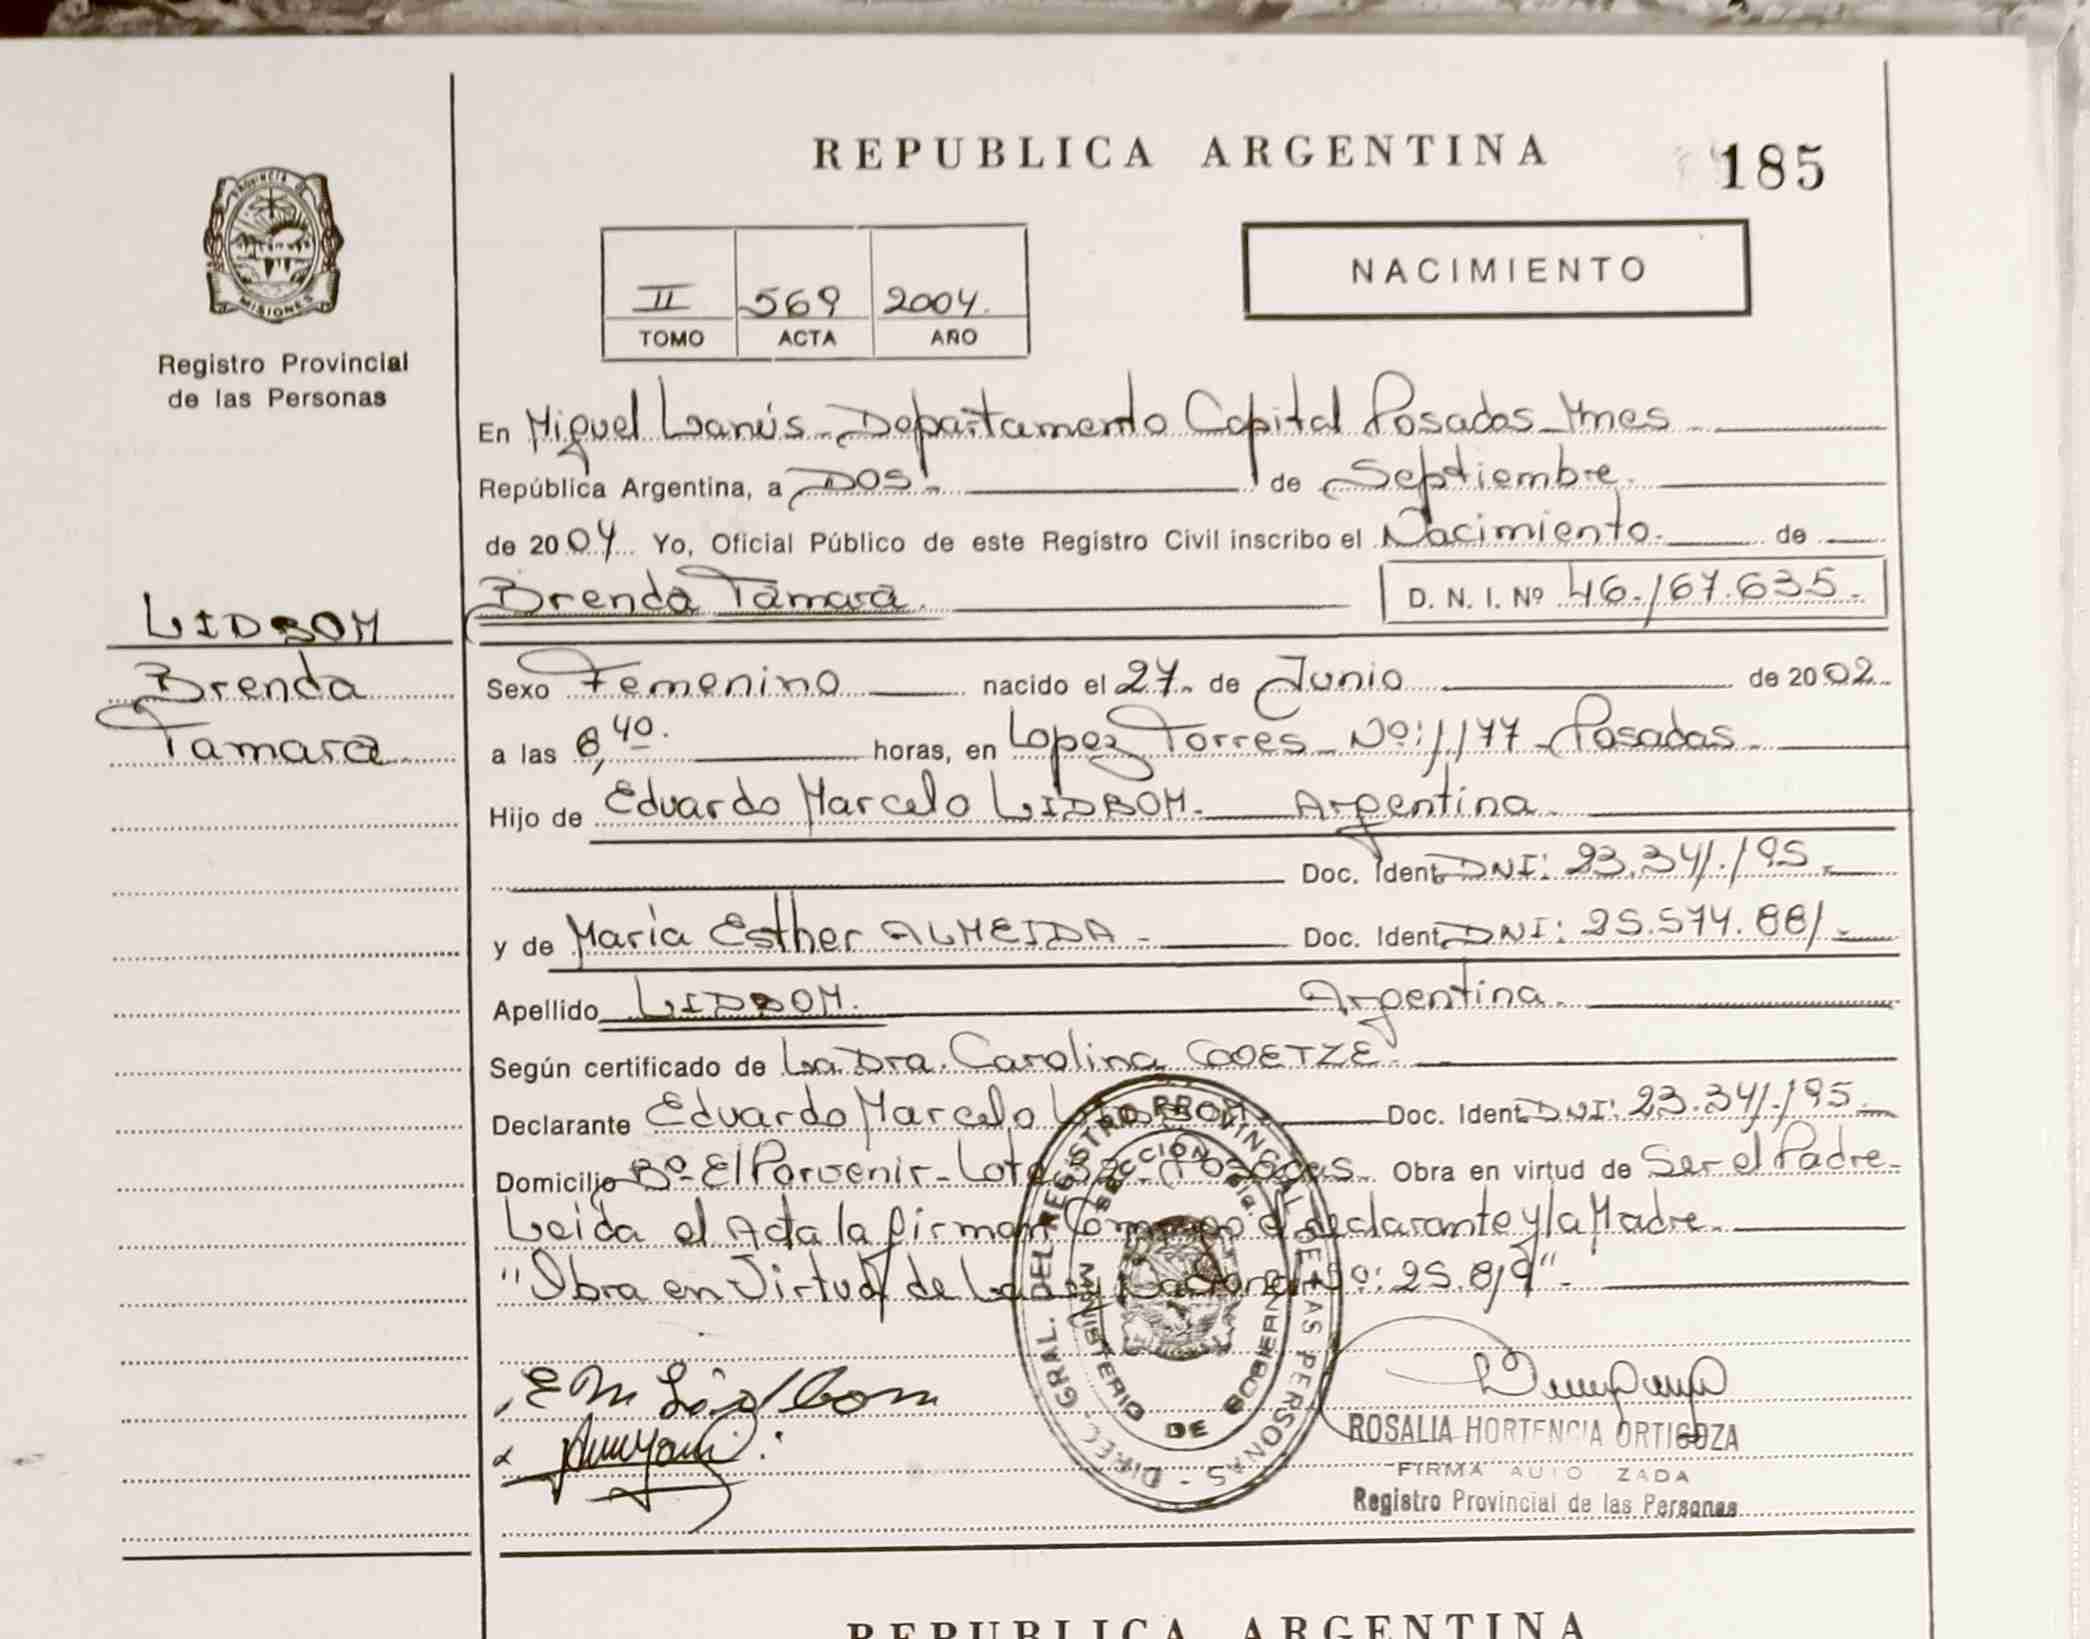 REPUBLICA ARGENTINA
185
PROVINCIA DE
MISIONES
Registro Provincial
de las Personas
II 569 2004.
TOMO ACTA AÑO
NACIMIENTO
En Miguel Lanús - Departamento Capital Posadas - Mnes
República Argentina, a DOS.- de Septiembre.
de 2004. Yo, Oficial Público de este Registro Civil inscribo el Nacimiento. de
Brenda Tamara. D. N. I. Nº 46.167.635.-
LIDBOM
Brenda
Tamara
Sexo Femenino nacido el 27. de Junio de 2002.
a las 8,40. horas, en Lopez Torres - Nº: 1177 - Posadas
Hijo de Eduardo Marcelo LIDBOM. Argentina.
Doc. Ident. DNI: 23.341.195.
y de María Esther ALMEIDA - Doc. Ident. DNI: 25.574.881.-
Apellido LIDBOM. Argentina.
Según certificado de La Dra. Carolina GOETZE.
Declarante Eduardo Marcelo Doc. Ident. DNI: 23.341.195.
Domicilio Bº El Porvenir - Lote Posadas. Obra en virtud de Ser el Padre.
Leida el Acta la firman Conmigo el declarante y la Madre.
"Obra en Virtud de La Ley Nacional Nº: 25.819".
DIREC. GRAL. DEL REGISTRO PROVINCIAL DE LAS PERSONAS -
MINISTERIO DE GOBIERNO
E M Lidbom
ROSALIA HORTENCIA ORTIGOZA
FIRMA AUTO ZADA
Registro Provincial de las Personas
REPUBLICA ARGENTINA